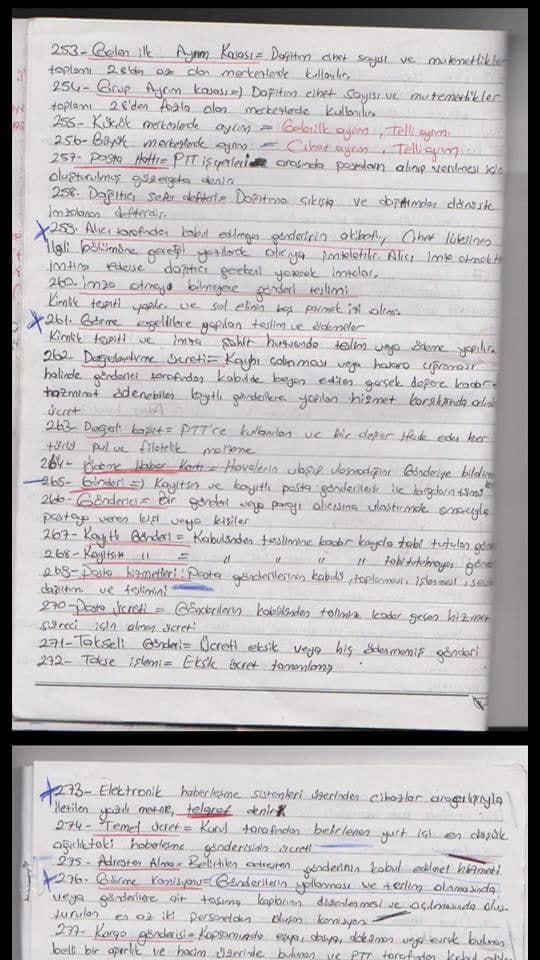 253- Gelen ilk Ayrım Kasası = Dağıtım cihet sayısı ve mutemetlikler
toplamı 28'den az olan merkezlerde kullanılır.
254- Grup Ayrım kasası =) Dağıtım cihet sayısı ve mutemetlikler
toplamı 28'den fazla olan merkezlerde kullanılır.
255- Küçük merkezlerde ayrım = Gelenilk ayrım, Telli ayrım.
256- Büyük merkezlerde ayrım = Cihet ayrım, Telli ayrım
257- Posta Hattı = PTT işyerleri arasında postaların alınıp verilmesi için
oluşturulmuş güzergaha denir.
258- Dağıtıcı sefer defteri = Dağıtıma çıkışta ve dağıtımdan dönüşte
imzalanan defterdir.
259- Alıcı tarafından kabul edilmeyen gönderinin akibeti, Cihet listesinin
ilgili bölümüne gereği yazılarak alıcıya imzalatılır. Alıcı imza atmaktan
imtina ederse dağıtıcı gerekeni yazarak imzalar.
260- imza atmayı bilmeyene gönderi teslimi
Kimlik tespiti yapılır ve sol elinin baş parmak izi alınır.
261- Görme engellilere yapılan teslim ve ödemeler
Kimlik tespiti ve imza şahit huzurunda teslim veya ödeme yapılır.
262- Değerlendirme ücreti = Kaybı çalınması veya hasara uğraması
halinde gönderici tarafından kabulde beyan edilen gerçek değere kadar
tazminat ödenebilen kayıtlı gönderilere yapılan hizmet karşılığında alınan
ücret
263- Değerli kağıt = PTT'ce kullanılan ve bir değer ifade eden her
türlü pul ve filatelik malzeme
264- Ödeme Haber Kartı = Havalenin ulaşıp ulaşmadığını Göndericiye bildiren
265- Gönderi =) Kayıtsız ve kayıtlı posta gönderileri ile kargoların tümü
266- Gönderici = Bir gönderi veya parayı alıcısına ulaştırmak amacıyla
postaya veren kişi veya kişiler
267- Kayıtlı Gönderi = Kabulünden teslimine kadar kayda tabi tutulan gönd
268- Kayıtsız " = " " " " tabi tutulmayan gönd
269- Posta hizmetleri: Posta gönderilerinin kabulü, toplanması, işlenmesi, sevki
dağıtım ve teslimini
270- Posta Ücreti = Gönderilerin kabulünden teslimine kadar geçen hizmet
süreci için alınan ücreti
271- Takseli Gönderi = Ücreti eksik veya hiç ödenmemiş gönderi
272- Takse işlemi = Eksik ücret tamamlama
273- Elektronik haberleşme sistemleri üzerinden cihazlar aracılığıyla
iletilen yazılı metne, telgraf denir
274- Temel Ücret = Kurul tarafından belirlenen yurt içi en düşük
ağırlıktaki haberleşme gönderisinin ücreti
275- Adresten Alma = Belirtilen adresten gönderinin kabul edilmesi hizmeti
276- Görme komisyonu = Gönderilerin yollanması ve teslim alınmasında
veya gönderilere ait taşıma kaplarının düzenlenmesi ve açılmasında oluş-
turulan en az iki personelden oluşan komisyon
277- Kargo gönderisi = Kapsamında eşya, dosya, doküman veya evrak bulunan
belli bir ağırlık ve hacim üzerinde bulunan ve PTT tarafından kabul edilen